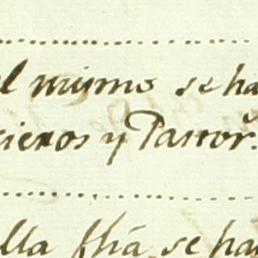 el mismo se ha
cieros y Pastor.
lla fhã, se ha